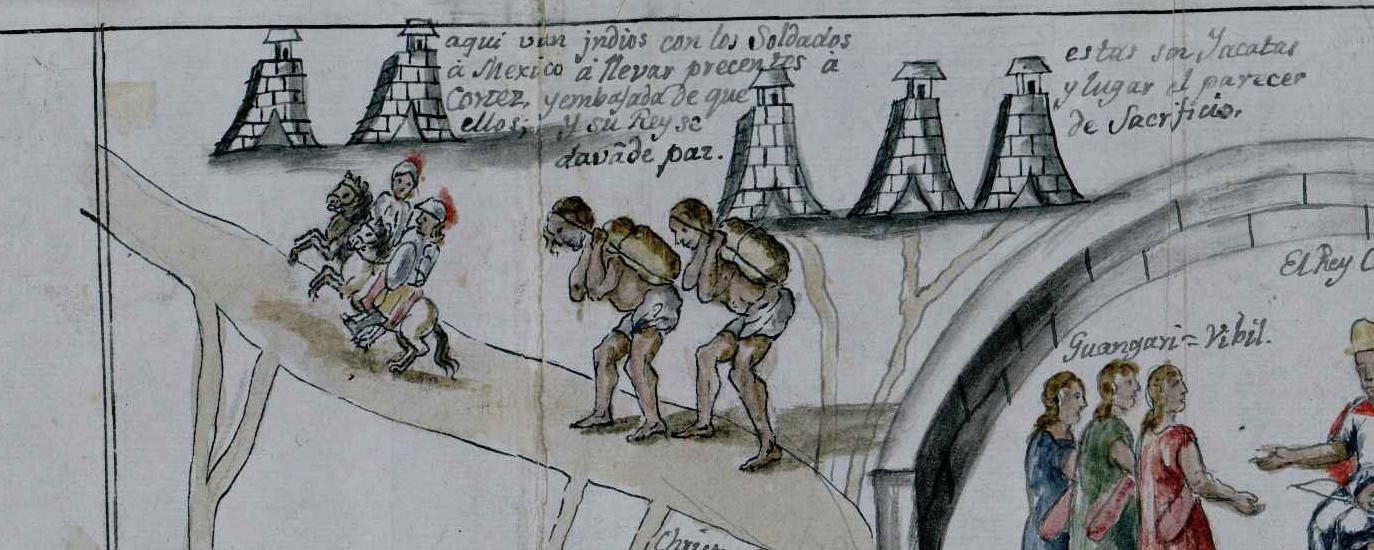 aqui van jndios con los Soldados
à Mexico á llevar precentes à
Cortez, y embajada de que
ellos; y su Rey se
davãde paz.
estas son Yacatas
y lugar al parecer
de Sacrificio.
El Rey
Guangari = Vibil.